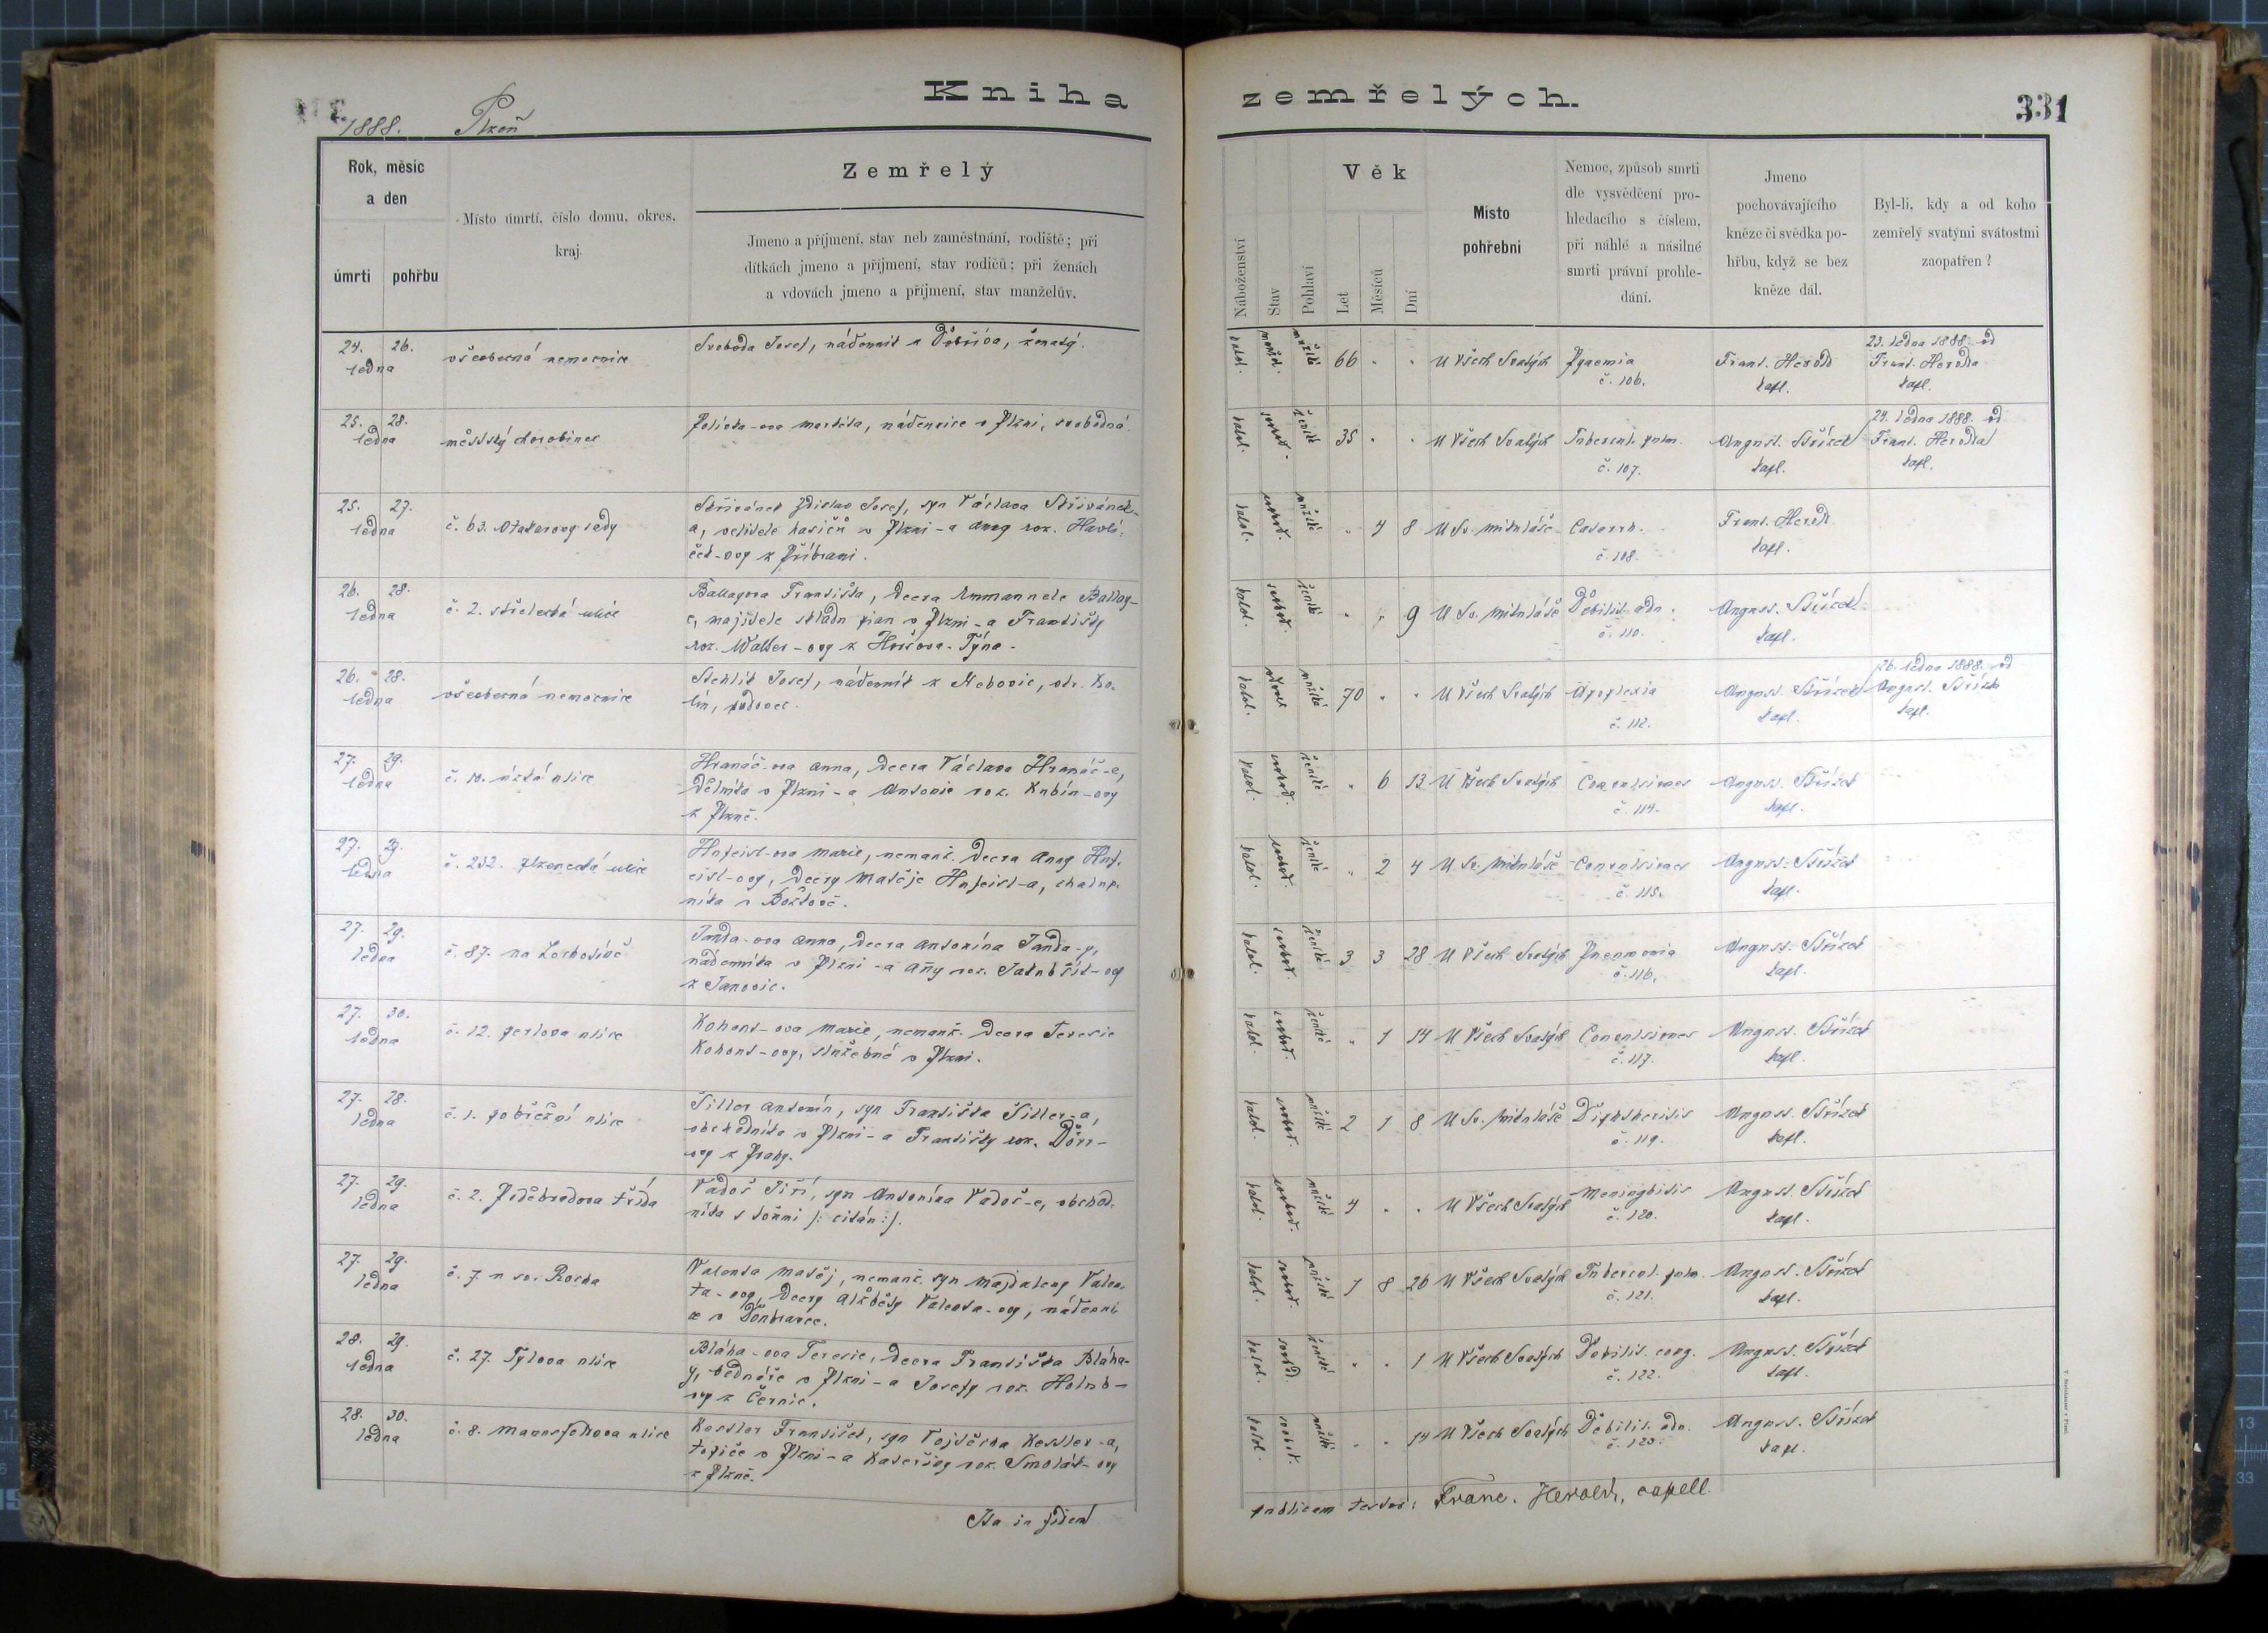 Kniha zemřelých.
331
1888. Plzeň
Rok, měsíc a den
úmrtí
pohřbu
Místo úmrtí, číslo domu, okres, kraj.
Zemřelý
Jmeno a příjmení, stav neb zaměstnání, rodiště; při
dítkách jmeno a příjmení, stav rodičů; při ženách
a vdovách jmeno a příjmení, stav manželův.
Náboženství
Stav
Pohlaví
Věk
Let
Měsíců
Dní
Místo
pohřební
Nemoc, způsob smrti
dle vysvědčení pro-
hledacího s číslem,
při náhlé a násilné
smrti právní prohle-
dání.
Jmeno
pochovávajícího
kněze či svědka po-
hřbu, když se bez
kněze dál.
Byl-li, kdy a od koho
zemřelý svatými svátostmi
zaopatřen?
24. 26. ledna
všeobecná nemocnice
Svoboda Josef, nádenník z Dobříva, ženatý.
katol. manžel. mužské 66 U Všech Svatých
Pyaemia č. 106.
Frant. Herold kapl.
23. ledna 1888 od
Frant. Herolda
kapl.
25. 28. ledna
městský chorobinec
Polívka-ova Markéta, nádenice v Plzni, svobodná.
katol. svobod. ženské 35 U Všech Svatých
Tubercul. pulm. č. 107.
August. Střízek kapl.
24. ledna 1888 od
Frant. Herolda
kapl.
25. 27. ledna
č. 63. Otakarovy sady
Skřivánek Zdislav Josef, syn Václava Skřivánek-
a, velitele hasičů v Plzni - a Anny roz. Havlí-
ček-ovy z Příbrami.
katol. svobod. mužské 4 8 U Sv. Mikuláše
Catarrh. č. 108.
Frant. Herold kapl.
26. 28. ledna
č. 2. střelecká ulice
Ballayova Františka, dcera Emmanuele Ballay-
e, majitele skladu pian v Plzni - a Františky
roz. Walter-ovy z Horšova-Týna.
katol. svobod. ženské 9 U Sv. Mikuláše
Debilit. adn. č. 110.
August. Střízek kapl.
26. 28. ledna
všeobecná nemocnice
Stehlík Josef, nádenník z Nebovic, okr. Ko-
lín, vdovec.
katol. vdovec mužské 70 U Všech Svatých
Apoplexia č. 112.
August. Střízek kapl.
26. ledna 1888 od
August. Střízka
kapl.
27. 29. ledna
č. 10. úzká ulice
Hranáč-ova Anna, dcera Václava Hranáč-e,
dělníka v Plzni - a Antonie roz. Kubín-ovy
z Plzně.
katol. svobod. ženské 6 13 U Všech Svatých
Convulsiones č. 114.
August. Střízek kapl.
27. 29. ledna
č. 232. plzenecká ulice
Hufeisl-ova Marie, nemanž. dcera Anny Huf-
eisl-ovy, dcery Matěje Hufeisl-a, chalup-
níka v
katol. svobod. ženské 2 4 U Sv. Mikuláše
Convulsiones č. 115.
August. Střízek kapl.
27. 29. ledna
č. 87. na
Janda-ova Anna, dcera Antonína Janda-y,
nádenníka v Plzni - a Anny roz. Jakubčík-ovy
z Janovic.
katol. svobod. ženské 3 3 28 U Všech Svatých
Pneumonia č. 116.
August. Střízek kapl.
27. 30. ledna
č. 12. perlova ulice
Kohout-ova Marie, nemanž. dcera Terezie
Kohout-ovy, služebné v Plzni.
katol. svobod. ženské 1 14 U Všech Svatých
Convulsiones č. 117.
August. Střízek kapl.
27. 28. ledna
č. 1. pobřežní ulice
Šiller Antonín, syn Františka Šiller-a,
obchodníka v Plzni - a Františky roz.
ovy z Prahy.
katol. svobod. mužské 2 1 8 U Sv. Mikuláše
Diphtheritis č. 119.
August. Střízek kapl.
27. 29. ledna
č. 2. Poděbradova třída
Vadoš Jiří, syn Antonína Vadoš-e, obchod-
níka s koňmi /: cikán :/.
katol. svobod. mužské 4 U Všech Svatých
Meninghitis č. 120.
August. Střízek kapl.
27. 29. ledna
č. 7. u sv. Rocha
Valenta Matěj, nemanž. syn Majdaleny Valen-
ta-ovy, dcery Alžběty Valenta-ovy, nádenni-
ce v Doubravce.
katol. svobod. mužské 1 8 26 U Všech Svatých
Tubercul. pulm. č. 121.
August. Střízek kapl.
28. 29. ledna
č. 27. Tylova ulice
Bláha-ova Terezie, dcera Františka Bláha-
y, bednáře v Plzni - a Josefy roz. Holub-
ovy z Černic.
katol. svobod. ženské 1 U Všech Svatých
Debilit. cong. č. 122.
August. Střízek kapl.
28. 30. ledna
č. 8. Mannsfeldova ulice
Kessler František, syn Vojtěcha Kessler-a,
topiče v Plzni - a Kateřiny roz. Smolák-ovy
z Plzně.
katol. svobod. mužské 14 U Všech Svatých
Debilit. adn. č. 123.
August. Střízek kapl.
Ita in fidem publicam testor: Franc. Herold, capell.